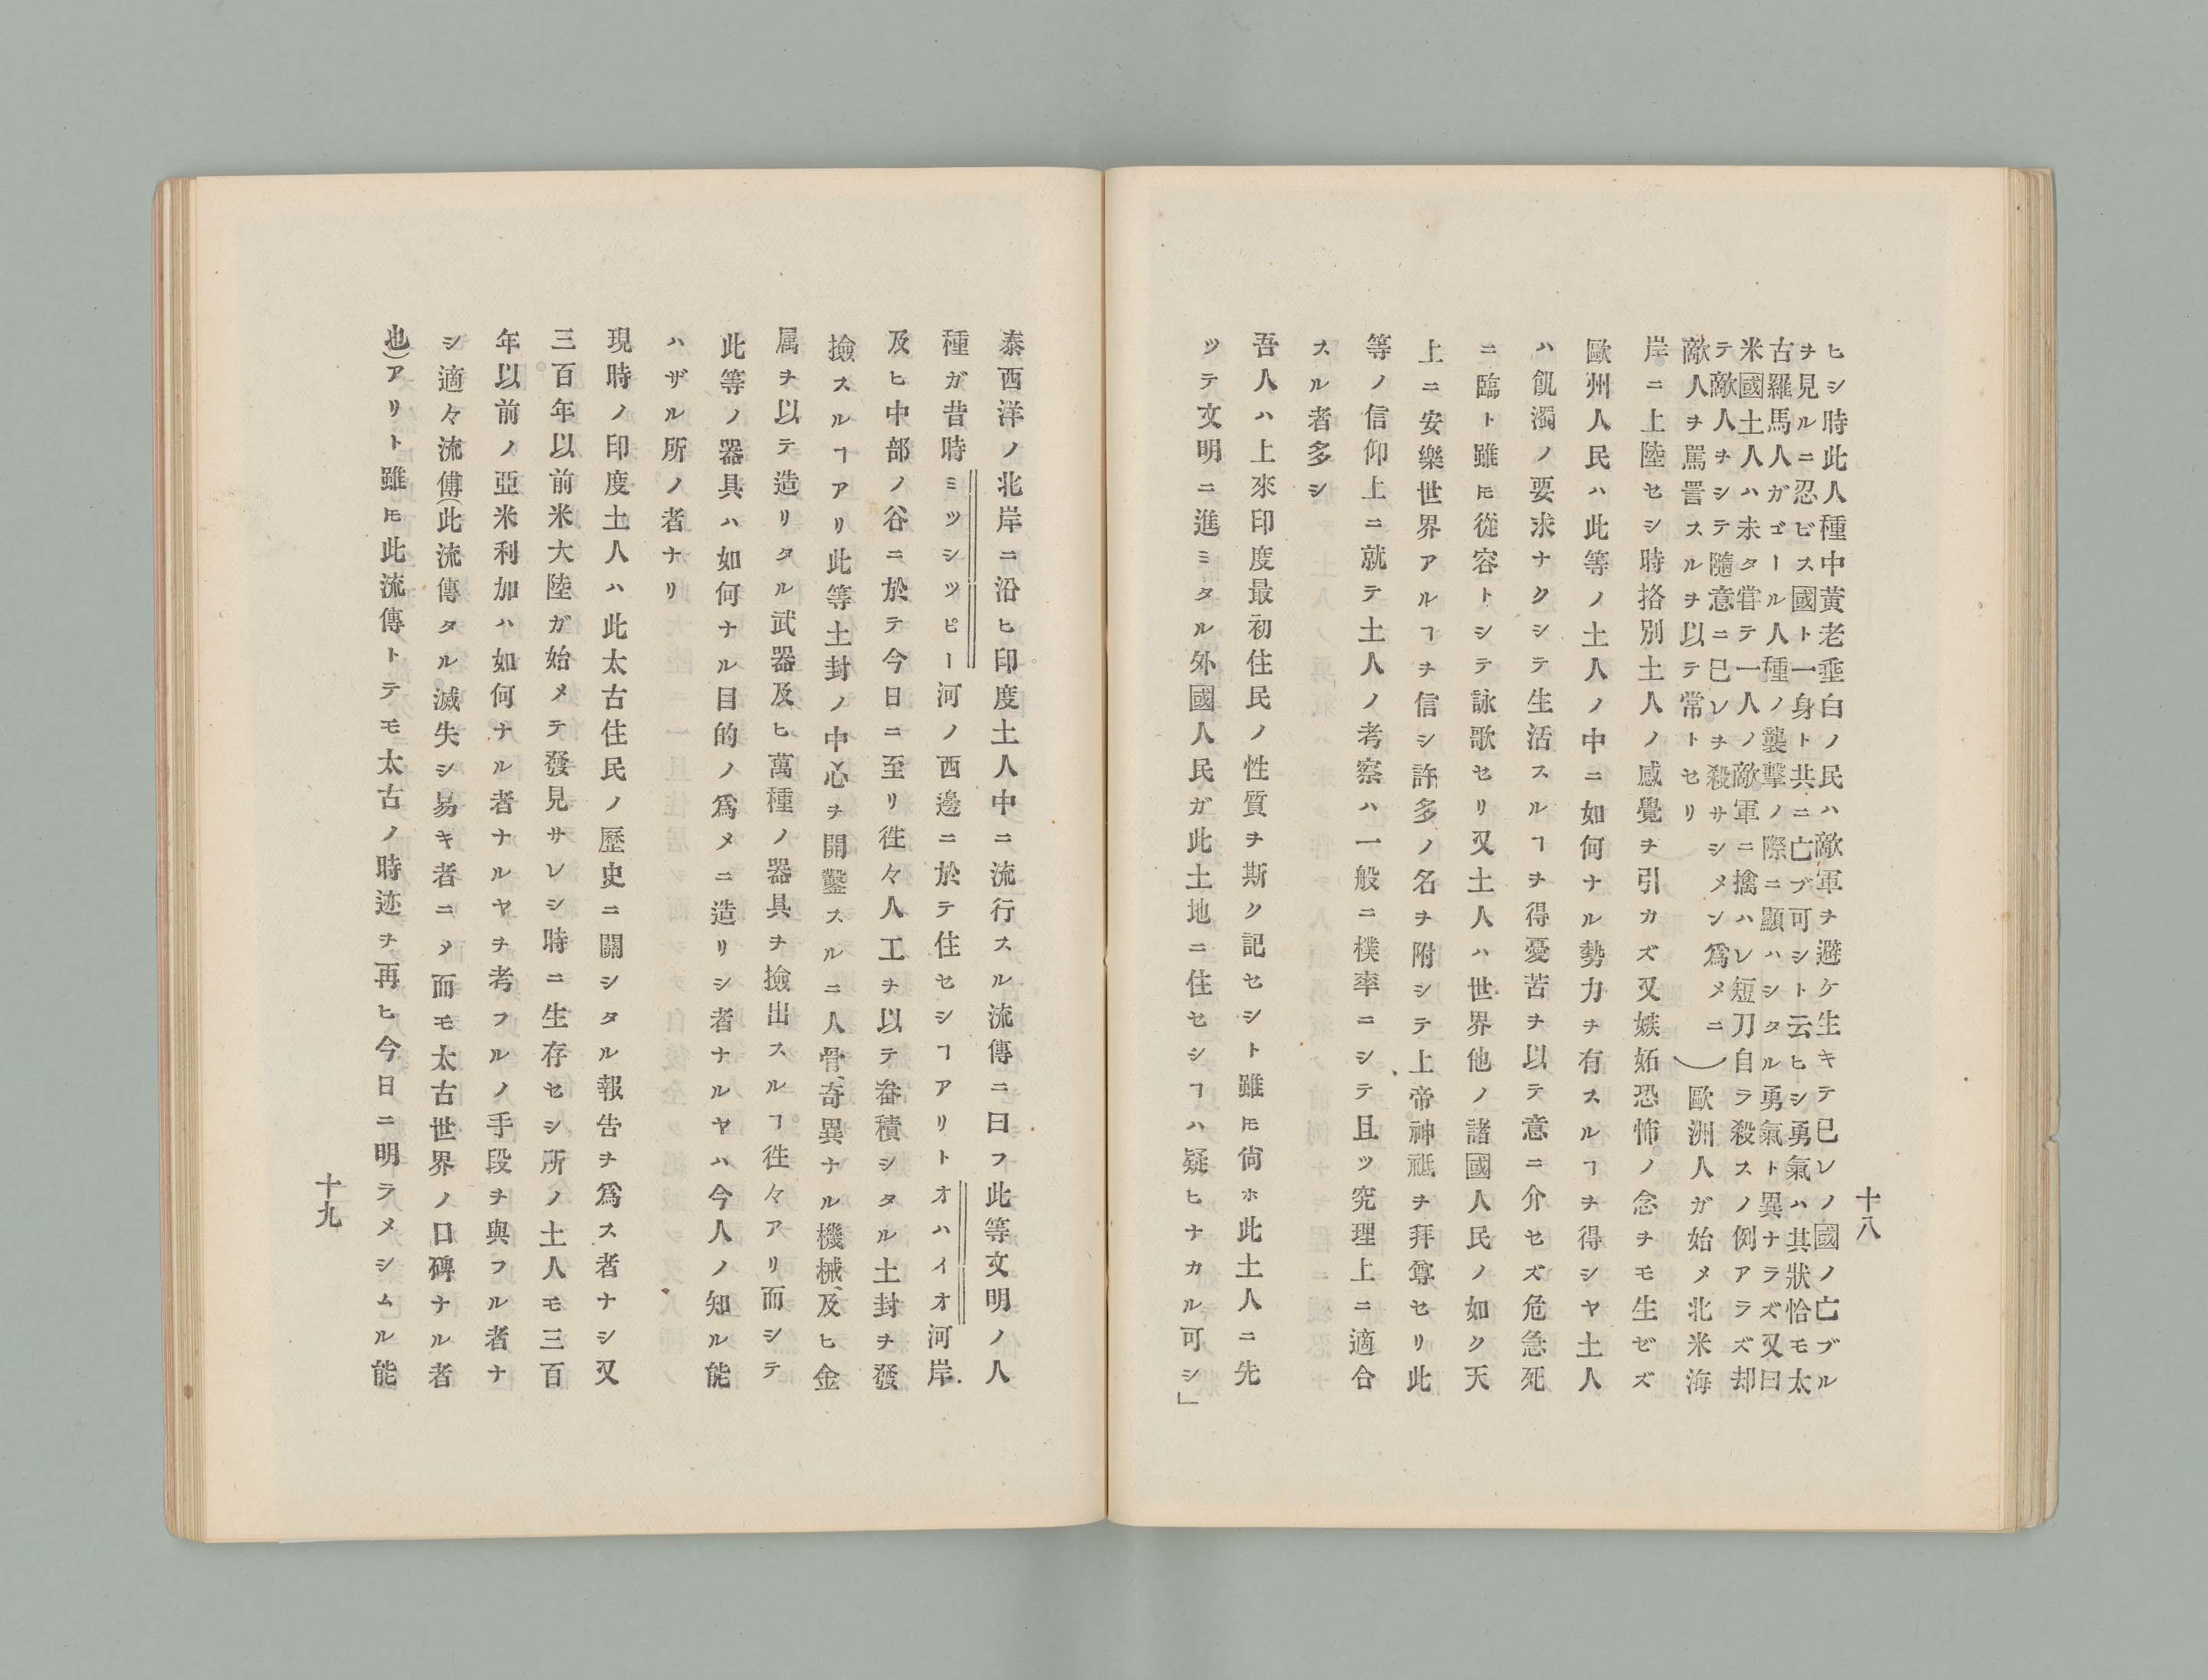 十八
ヒシ時此人種中黃老垂白ノ民ハ敵軍ヲ避ケ生キテ已レノ國ノ亡ブル
ヲ見ルニ忍ビス國ト一身ト共ニ亡ブ可シト云ヒシ勇氣ハ其狀恰モ太
古羅馬人ガゴール人種ノ襲擊ノ際ニ顯ハシタル勇氣ト異ナラズ又曰
米國土人ハ未タ甞テ一人ノ敵軍ニ擒ハレ短刀自ラ殺スノ例アラズ却
テ敵人ヲシテ隨意ニ已レヲ殺サシメン爲メニ
敵人ヲ罵詈スルヲ以テ常トセリ
)歐洲人ガ始メ北米海
岸ニ上陸セシ時挌別土人ノ感覺ヲ引カズ又嫉妬恐怖ノ念ヲモ生ゼズ
歐州人民ハ此等ノ土人ノ中ニ如何ナル勢力ヲ有スルヿヲ得シヤ土人
ハ飢濁ノ要求ナクシテ生活スルヿヲ得憂苦ヲ以テ意ニ介セズ危急死
ニ臨ト雖𪜈從容トシテ詠歌セリ又土人ハ世界他ノ諸國人民ノ如ク天
上ニ安樂世界アルヿヲ信シ許多ノ名ヲ附シテ上帝神祗ヲ拜尊セリ此
等ノ信仰上ニ就テ土人ノ考察ハ一般ニ樸率ニシテ且ツ究理上ニ適合
スル者多シ
吾人ハ上來印度最初住民ノ性質ヲ斯ク記セシト雖𪜈尙ホ此土人ニ先
ツテ文明ニ進ミタル外國人民ガ此土地ニ住セシヿハ疑ヒナカル可シ」
泰西洋ノ北岸ニ沿ヒ印度土人中ニ流行スル流傳ニ曰フ此等文明ノ人
種ガ昔時ミツシツピー河ノ西邊ニ於テ住セシヿアリトオハイオ河岸
及ヒ中部ノ谷ニ於テ今日ニ至リ徃々人工ヲ以テ畚積シタル土封ヲ發
撿スルヿアリ此等土封ノ中心ヲ開鑿スルニ人骨、奇異ナル機械、及ヒ金
属ヲ以テ造リタル武器及ヒ萬種ノ器具ヲ撿出スルヿ徃々アリ而シテ
此等ノ器具ハ如何ナル目的ノ爲メニ造リシ者ナルヤハ今人ノ知ル能
ハザル所ノ者ナリ
現時ノ印度土人ハ此太古住民ノ歷史ニ關シタル報告ヲ爲ス者ナシ又
三百年以前米大陸ガ始メテ發見サレシ時ニ生存セシ所ノ土人モ三百
年以前ノ亞米利加ハ如何ナル者ナルヤヲ考フルノ手段ヲ與フル者ナ
シ適々流傳(此流傳タル滅失シ易キ者ニメ而モ太古世界ノ口碑ナル者
也)アリト雖𪜈此流傳トテモ太古ノ時迹ヲ再ヒ今日ニ明ラメシムル能
十九